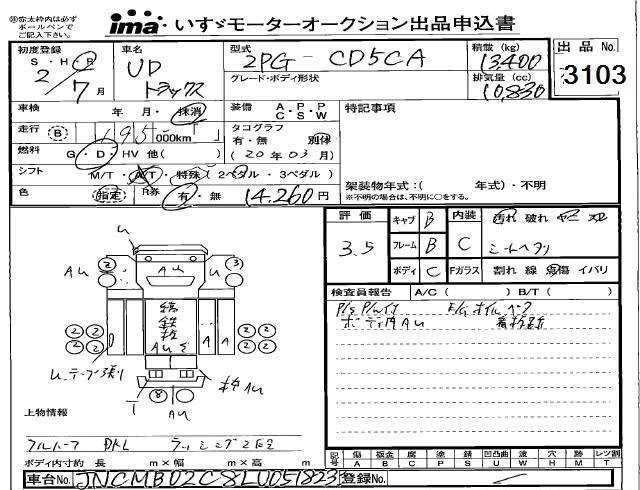 ※赤太枠内は必ず
ボールペンで
ご記入下さい。
ima いすゞモーターオークション出品申込書
出品 No.
3103
初度登録
S・H・R
2/7月
車名
UD
トラックス
型式
2PG-CD5CA
グレード・ボディ形状
積載 (kg)
13400
排気量 (cc)
10,830
車検 年・月・抹消
走行 B 195 000km
燃料 G・D・HV 他( )
シフト M/T・A/T・特殊(2ペダル・3ペダル)
色 指定 R券 有・無 14,260円
装備 A・P・P
C・S・W
タコグラフ
有・無 別体
(20年03月)
特記事項
架装物年式:( 年式)・不明
※不明の場合は、不明に○をする。
評価
3.5
キャブ B
フレーム B
ボディ C
内装
C
汚れ 破れ ヤニ スレ
シートヘタリ
Fガラス 割れ 線 飛傷 イバリ
検査員報告 A/C( ) B/T( )
ボディ内AU
U
AU
2
3
AU
縞
鉄
板
A
A
2 2 2 2
2 2 2 2
U
8
AU
上物情報
アルバータ ラッシング2段
ボディ内寸約 長 m×幅 m×高 m
記号 傷 A 板金 B 腐 C 塗 P 錆 S 凹凸曲 U 波 W 穴 H 跡 M レンズ割 T
車台No. JNCMB02C8LU051823
登録No.